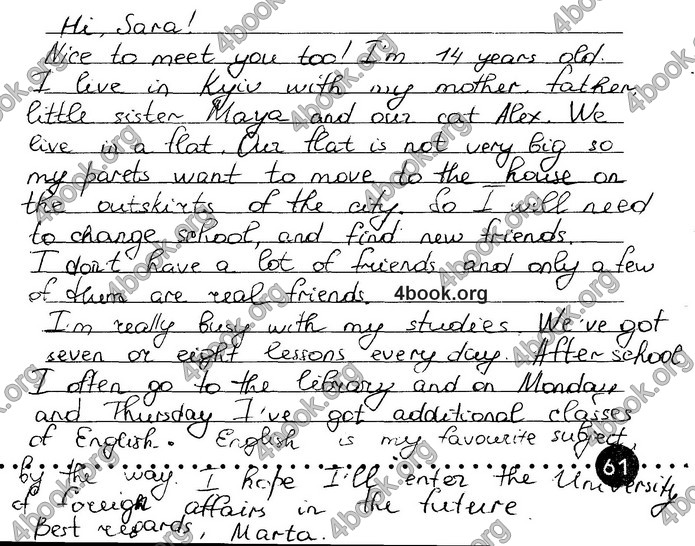 Hi, Sara!
Nice to meet you too! I'm 14 years old.
I live in Kyiv with my mother, father,
little sister Maya and our cat Alex. We
live in a flat. Our flat is not very big so
my parets want to move to the house on
the outskirts of the city. So I will need
to change school, and find new friends.
I don't have a lot of friends and only a few
of them are real friends. 4book.org
I'm really busy with my studies. We've got
seven or eight lessons every day. After school
I often go to the library and on Monday
and Thursday I've got additional classes
of English. English is my favourite subject,
61
by the way. I hope I'll enter the University
of foreign affairs in the future
Best regards, Marta.